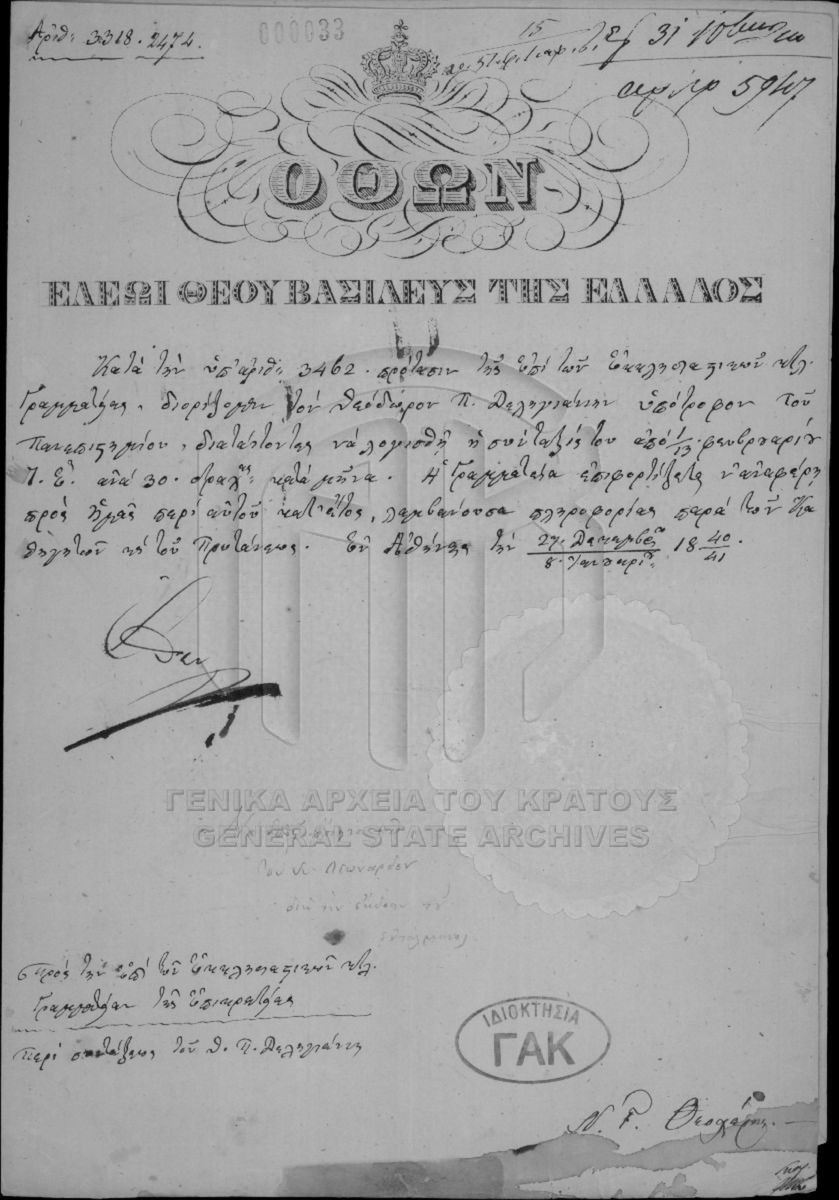 Ἀριθ: 3318. 2474.
000033
15
31 10
59
ΟΘΩΝ
ΕΛΕΩΙ ΘΕΟΥ ΒΑΣΙΛΕΥΣ ΤΗΣ ΕΛΛΑΔΟΣ
Κατὰ τὴν ὑπ' ἀριθ: 3462. πρότασιν τῆς ἐπὶ τῶν Ἐκκλησιαστικῶν κτλ.
Γραμματείας, διορίζομεν τὸν Θεόδωρον Π. Δεληγιάννην ὑπότροφον τοῦ
Πανεπιστημίου, διατάττοντες νὰ λογισθῇ ἡ σύνταξίς του ἀπὸ 1/13 φευβρουαρίου
τ. ἔ. ἀνὰ 30. δραχ: κατὰ μῆνα. Ἡ Γραμματεία ἐπιφορτίζεται ν' ἀναφέρῃ
πρὸς ἡμᾶς περὶ αὐτοῦ κατ' ἔτος, λαμβάνουσα πληροφορίας παρὰ τῶν Κα
θηγητῶν καὶ τοῦ Πρυτάνεως. Ἐν Ἀθήναις τὴν 27. Δεκεμβρ / 8. Ἰανουαρί 18 40/41.
Ὄθων
ΓΕΝΙΚΑ ΑΡΧΕΙΑ ΤΟΥ ΚΡΑΤΟΥΣ
GENERAL STATE ARCHIVES
τοῦ Κ.
διὰ τὴν ἔκδοσιν τοῦ
ἐντάλματος
Πρὸς τὴν ἐπὶ τῶν Ἐκκλησιαστικῶν κτλ.
Γραμματείαν τῆς Ἐπικρατείας
περὶ συντάξεως τοῦ Θ. Π. Δεληγιάννη
ΙΔΙΟΚΤΗΣΙΑ
ΓΑΚ
Ν. Γ. Θεοχάρης